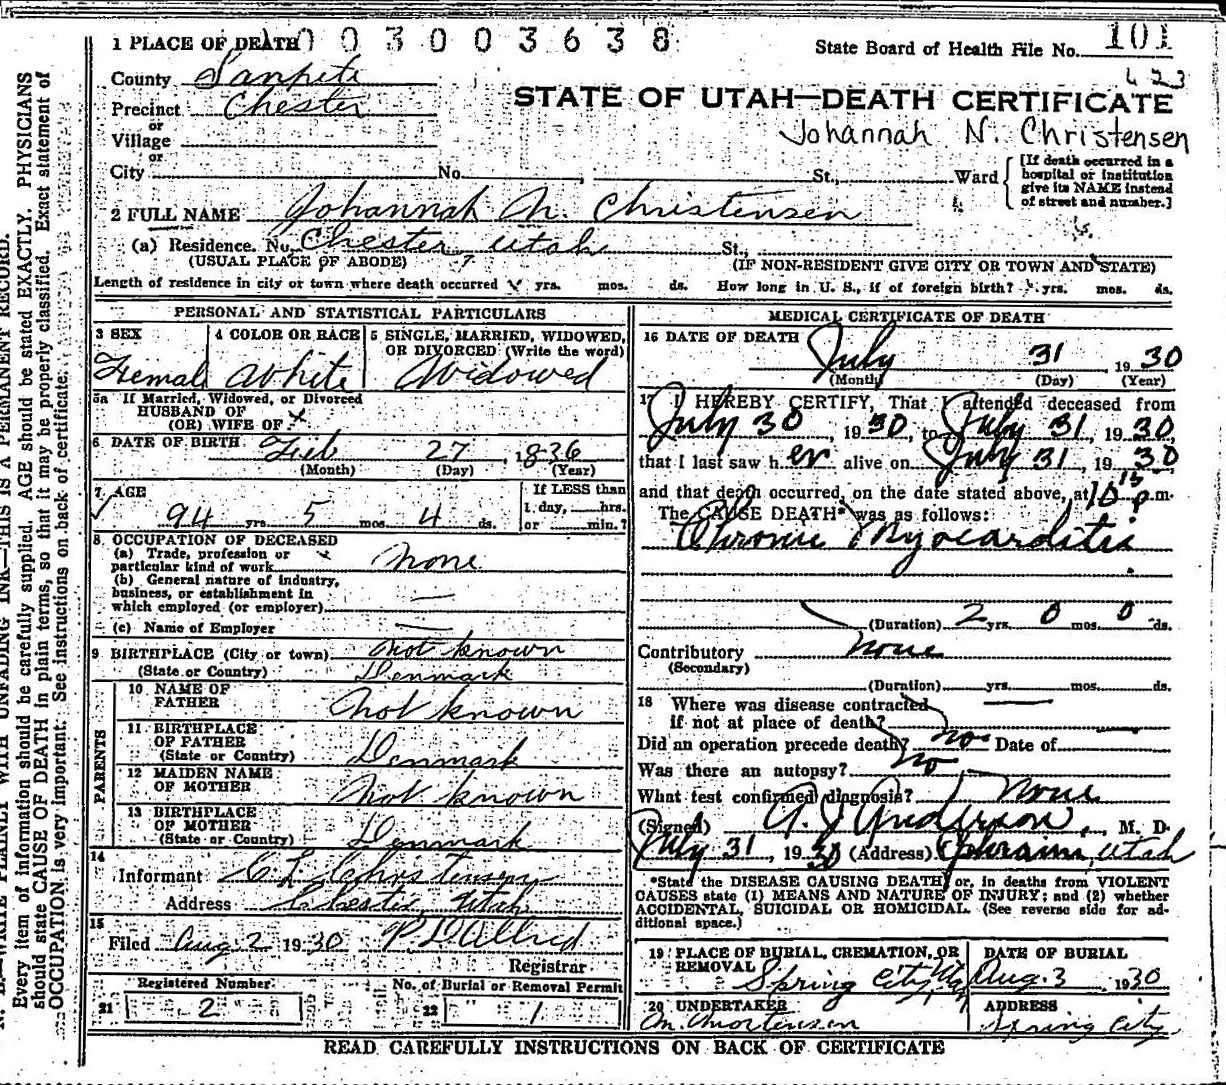 1 PLACE OF DEATH 0 0 3 0 0 3 6 3 8 State Board of Health File No. 101
County Sanpete 423
Precinct Chester STATE OF UTAH—DEATH CERTIFICATE
or
Village Johannah N. Christensen
or
City No. , St., Ward { [If death occurred in a hospital or institution give its NAME instead of street and number.]
2 FULL NAME Johannah N. Christensen
(a) Residence. No. Chester Utah St.,
(USUAL PLACE OF ABODE) (IF NON-RESIDENT GIVE CITY OR TOWN AND STATE)
Length of residence in city or town where death occurred yrs. mos. ds. How long in U. S., if of foreign birth? yrs. mos. ds.
PERSONAL AND STATISTICAL PARTICULARS
3 SEX 4 COLOR OR RACE 5 SINGLE, MARRIED, WIDOWED,
OR DIVORCED (Write the word)
Female White Widowed
5a If Married, Widowed, or Divorced
HUSBAND OF
(OR) WIFE OF x
6 DATE OF BIRTH Feb 27, 1836
(Month) (Day) (Year)
7 AGE If LESS than
1 day, hrs.
94 yrs. 5 mos. 4 ds. or min.?
8 OCCUPATION OF DECEASED
(a) Trade, profession or
particular kind of work none
(b) General nature of industry,
business, or establishment in
which employed (or employer) —
(c) Name of Employer —
9 BIRTHPLACE (City or town) not known
(State or Country) Denmark
PARENTS
10 NAME OF
FATHER not known
11 BIRTHPLACE
OF FATHER
(State or Country) Denmark
12 MAIDEN NAME
OF MOTHER not known
13 BIRTHPLACE
OF MOTHER
(State or Country) Denmark
14
Informant C L Christensen
Address Chester, Utah
15
Filed Aug. 2 1930 P. D. Allred
Registrar.
Registered Number No. of Burial or Removal Permit
21 2 22 1
MEDICAL CERTIFICATE OF DEATH
16 DATE OF DEATH July 31, 1930
(Month) (Day) (Year)
17 I HEREBY CERTIFY, That I attended deceased from
July 30, 1930, to July 31, 1930,
that I last saw her alive on July 31, 1930
and that death occurred, on the date stated above, at 10 15 p.m.
The CAUSE DEATH* was as follows:
Chronic Myocarditis
(Duration) 2 yrs. 0 mos. 0 ds.
Contributory none
(Secondary)
(Duration) yrs. mos. ds.
18 Where was disease contracted
if not at place of death? —
Did an operation precede death? no Date of
Was there an autopsy? no
What test confirmed diagnosis? none
(Signed) A. J. Anderson, M. D.
July 31, 1930 (Address) Ephraim, Utah
*State the DISEASE CAUSING DEATH, or, in deaths from VIOLENT
CAUSES state (1) MEANS AND NATURE OF INJURY; and (2) whether
ACCIDENTAL, SUICIDAL OR HOMICIDAL. (See reverse side for ad-
ditional space.)
19 PLACE OF BURIAL, CREMATION, OR DATE OF BURIAL
REMOVAL Spring City, Utah Aug. 3 1930
20 UNDERTAKER ADDRESS
M. Mortensen Spring City
READ CAREFULLY INSTRUCTIONS ON BACK OF CERTIFICATE
N. B.—WRITE PLAINLY WITH UNFADING INK—THIS IS A PERMANENT RECORD.
Every item of information should be carefully supplied. AGE should be stated EXACTLY. PHYSICIANS
should state CAUSE OF DEATH in plain terms, so that it may be properly classified. Exact statement of
OCCUPATION is very important. See instructions on back of certificate.